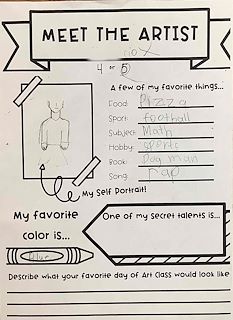 MEET THE ARTIST
4 or 5
A few of my favorite things...
Food: Pizza
Sport: football
Subject: Math
Hobby: sports
Book: Dog man
Song: rap
My Self Portrait!
My favorite
color is...
Blue
One of my secret talents is...
Describe what your favorite day of Art Class would look like